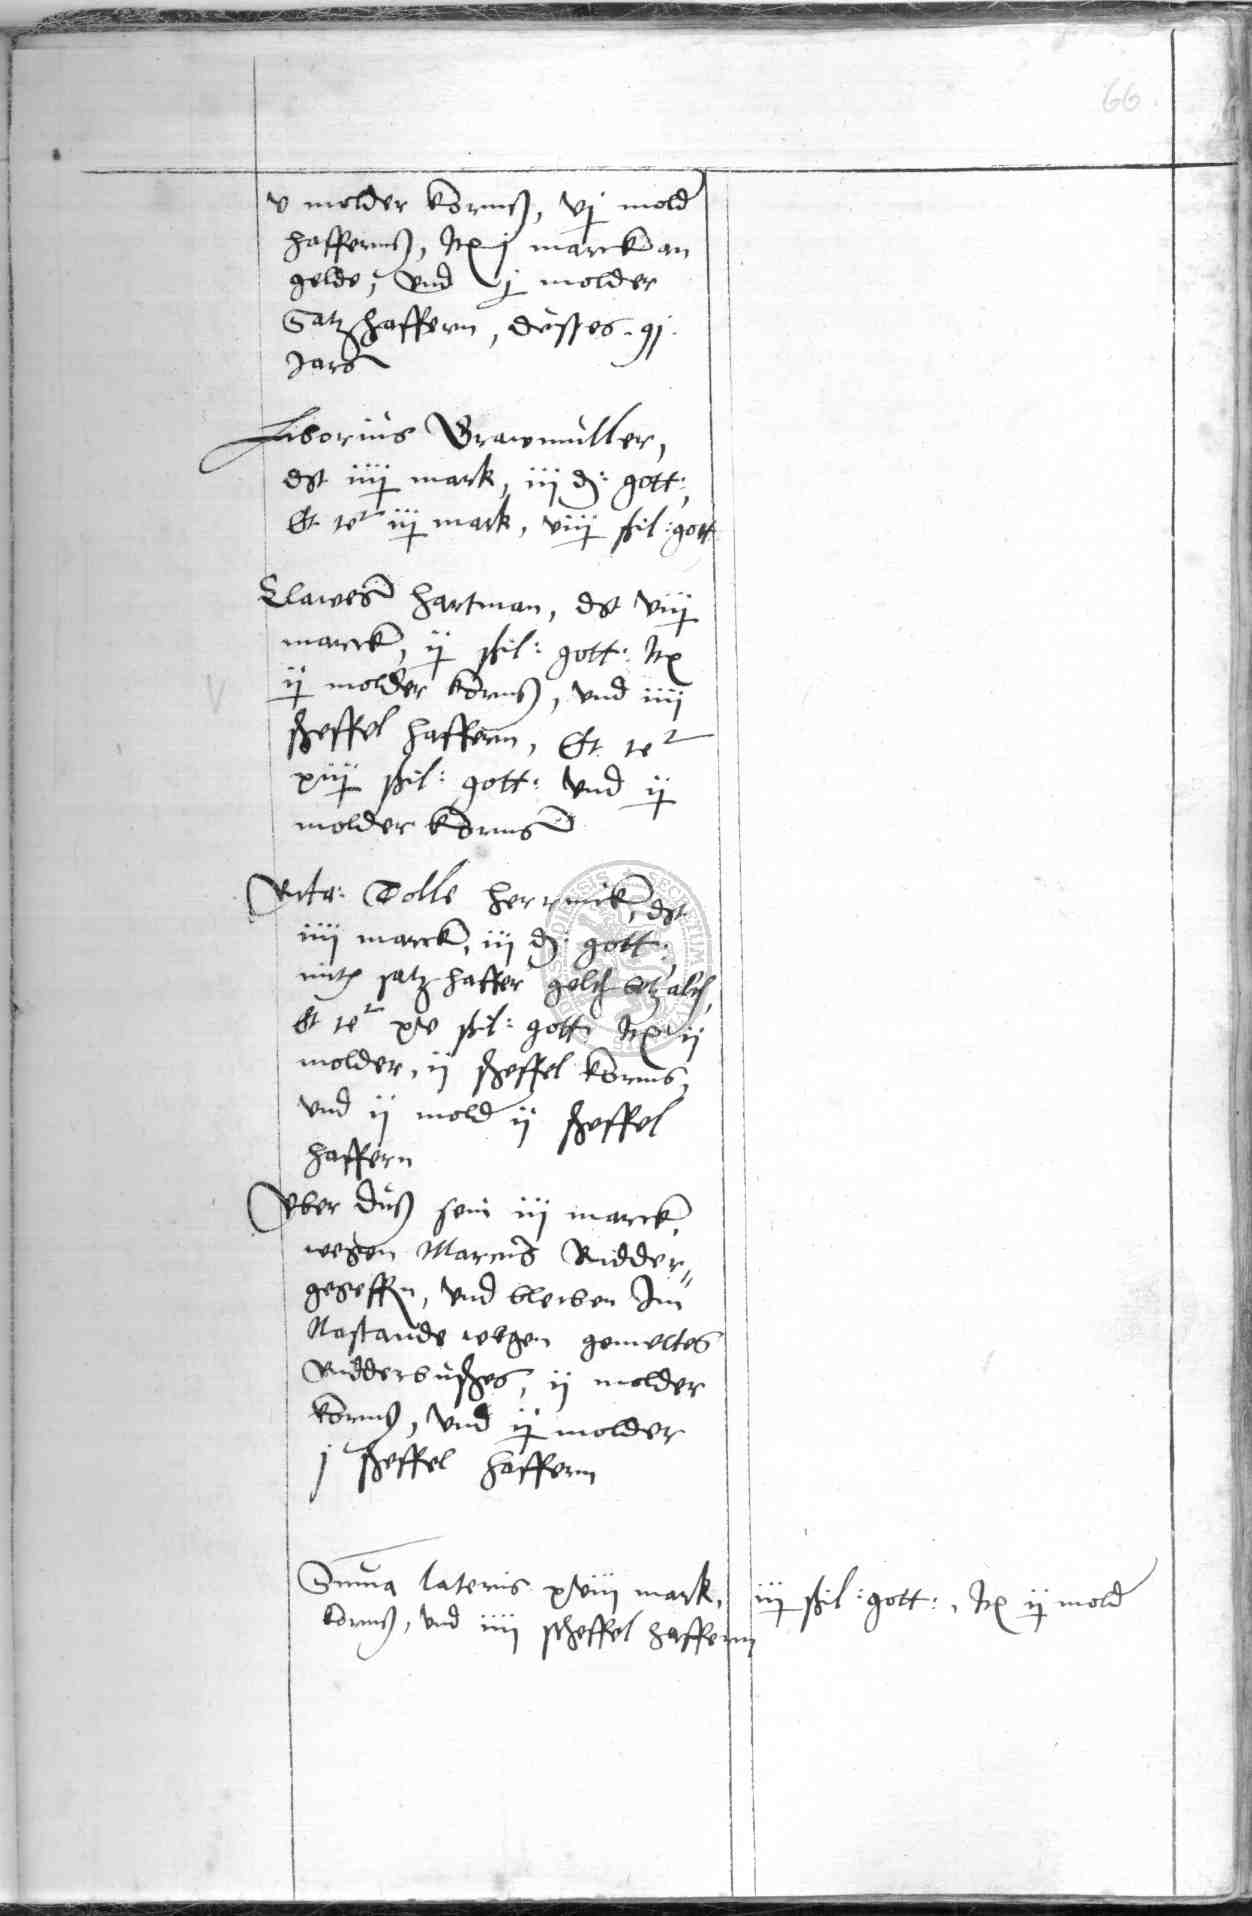 66
v molder korns, vj mold
hafferns, Jtem j marck an
gelde, vnd j molder
Satzhaffern, disses 91
Jars
Liborius Brawmuller,
dt iiij mark, iij d: gott:,
Et tet iij mark, viij schil: gott
Clawes hartman, dt viij
marck, ij schil: gott: Jtem
ij molder korns, vnd iiij
scheffel haffern, Et tet
xiij schil: gott: vnd ij
molder korns
Tolle herrnik, dt
iiij marck, iij d: gott:,
satzhaffer
Et tet xv schil: gott: Jtem ij
molder, ij scheffel korns,
vnd ij mold ij scheffel
haffern
Vber dis sein iij marck,
wegen Marcus Ridder-
vnd bleiben Im
Nastande wegen gemeltes
Ridderbusches, ij molder
korns, vnd ij molder
j scheffel haffern
Summa lateris xviij mark, iij schil: gott:, Jtem ij mold
korns, vnd iiij scheffel haffern